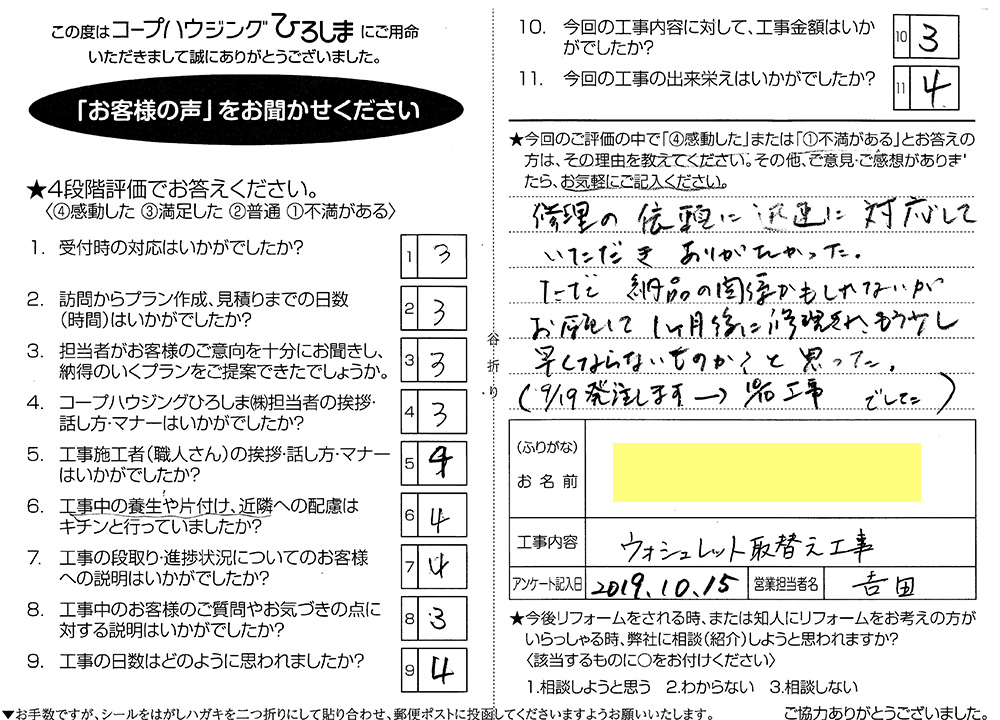 この度はコープハウジングひろしまにご用命
いただきまして誠にありがとうございました。
「お客様の声」をお聞かせください
★4段階評価でお答えください。
〈④感動した ③満足した ②普通 ①不満がある〉
1. 受付時の対応はいかがでしたか?
1 3
2. 訪問からプラン作成、見積りまでの日数
(時間)はいかがでしたか?
2 3
3. 担当者がお客様のご意向を十分にお聞きし、
納得のいくプランをご提案できたでしょうか。
3 3
4. コープハウジングひろしま㈱担当者の挨拶・
話し方・マナーはいかがでしたか?
4 3
5. 工事施工者(職人さん)の挨拶・話し方・マナー
はいかがでしたか?
5 4
6. 工事中の養生や片付け、近隣への配慮は
キチンと行っていましたか?
6 4
7. 工事の段取り・進捗状況についてのお客様
への説明はいかがでしたか?
7 4
8. 工事中のお客様のご質問やお気づきの点に
対する説明はいかがでしたか?
8 3
9. 工事の日数はどのように思われましたか?
9 4
▼お手数ですが、シールをはがしハガキを二つ折りにして貼り合わせ、郵便ポストに投函してくださいますようお願いいたします。
谷折り
10. 今回の工事内容に対して、工事金額はいか
がでしたか?
10 3
11. 今回の工事の出来栄えはいかがでしたか?
11 4
★今回のご評価の中で「④感動した」または「①不満がある」とお答えの
方は、その理由を教えてください。その他、ご意見・ご感想がありま
たら、お気軽にご記入ください。
修理の依頼に迅速に対応して
いただき ありがたかった。
ただ 納品の関係かもしれないが
お願いして 1ヶ月後に修理され、もう少し
早くならないものか?と思った。
(9/19 発注します → 10/10 工事 でした)
(ふりがな)
お名前
工事内容
ウォシュレット取替え工事
アンケート記入日
2019.10.15
営業担当者名
吉田
★今後リフォームをされる時、または知人にリフォームをお考えの方が
いらっしゃる時、弊社に相談(紹介)しようと思われますか?
〈該当するものに○をお付けください〉
1.相談しようと思う 2.わからない 3.相談しない
ご協力ありがとうございました。